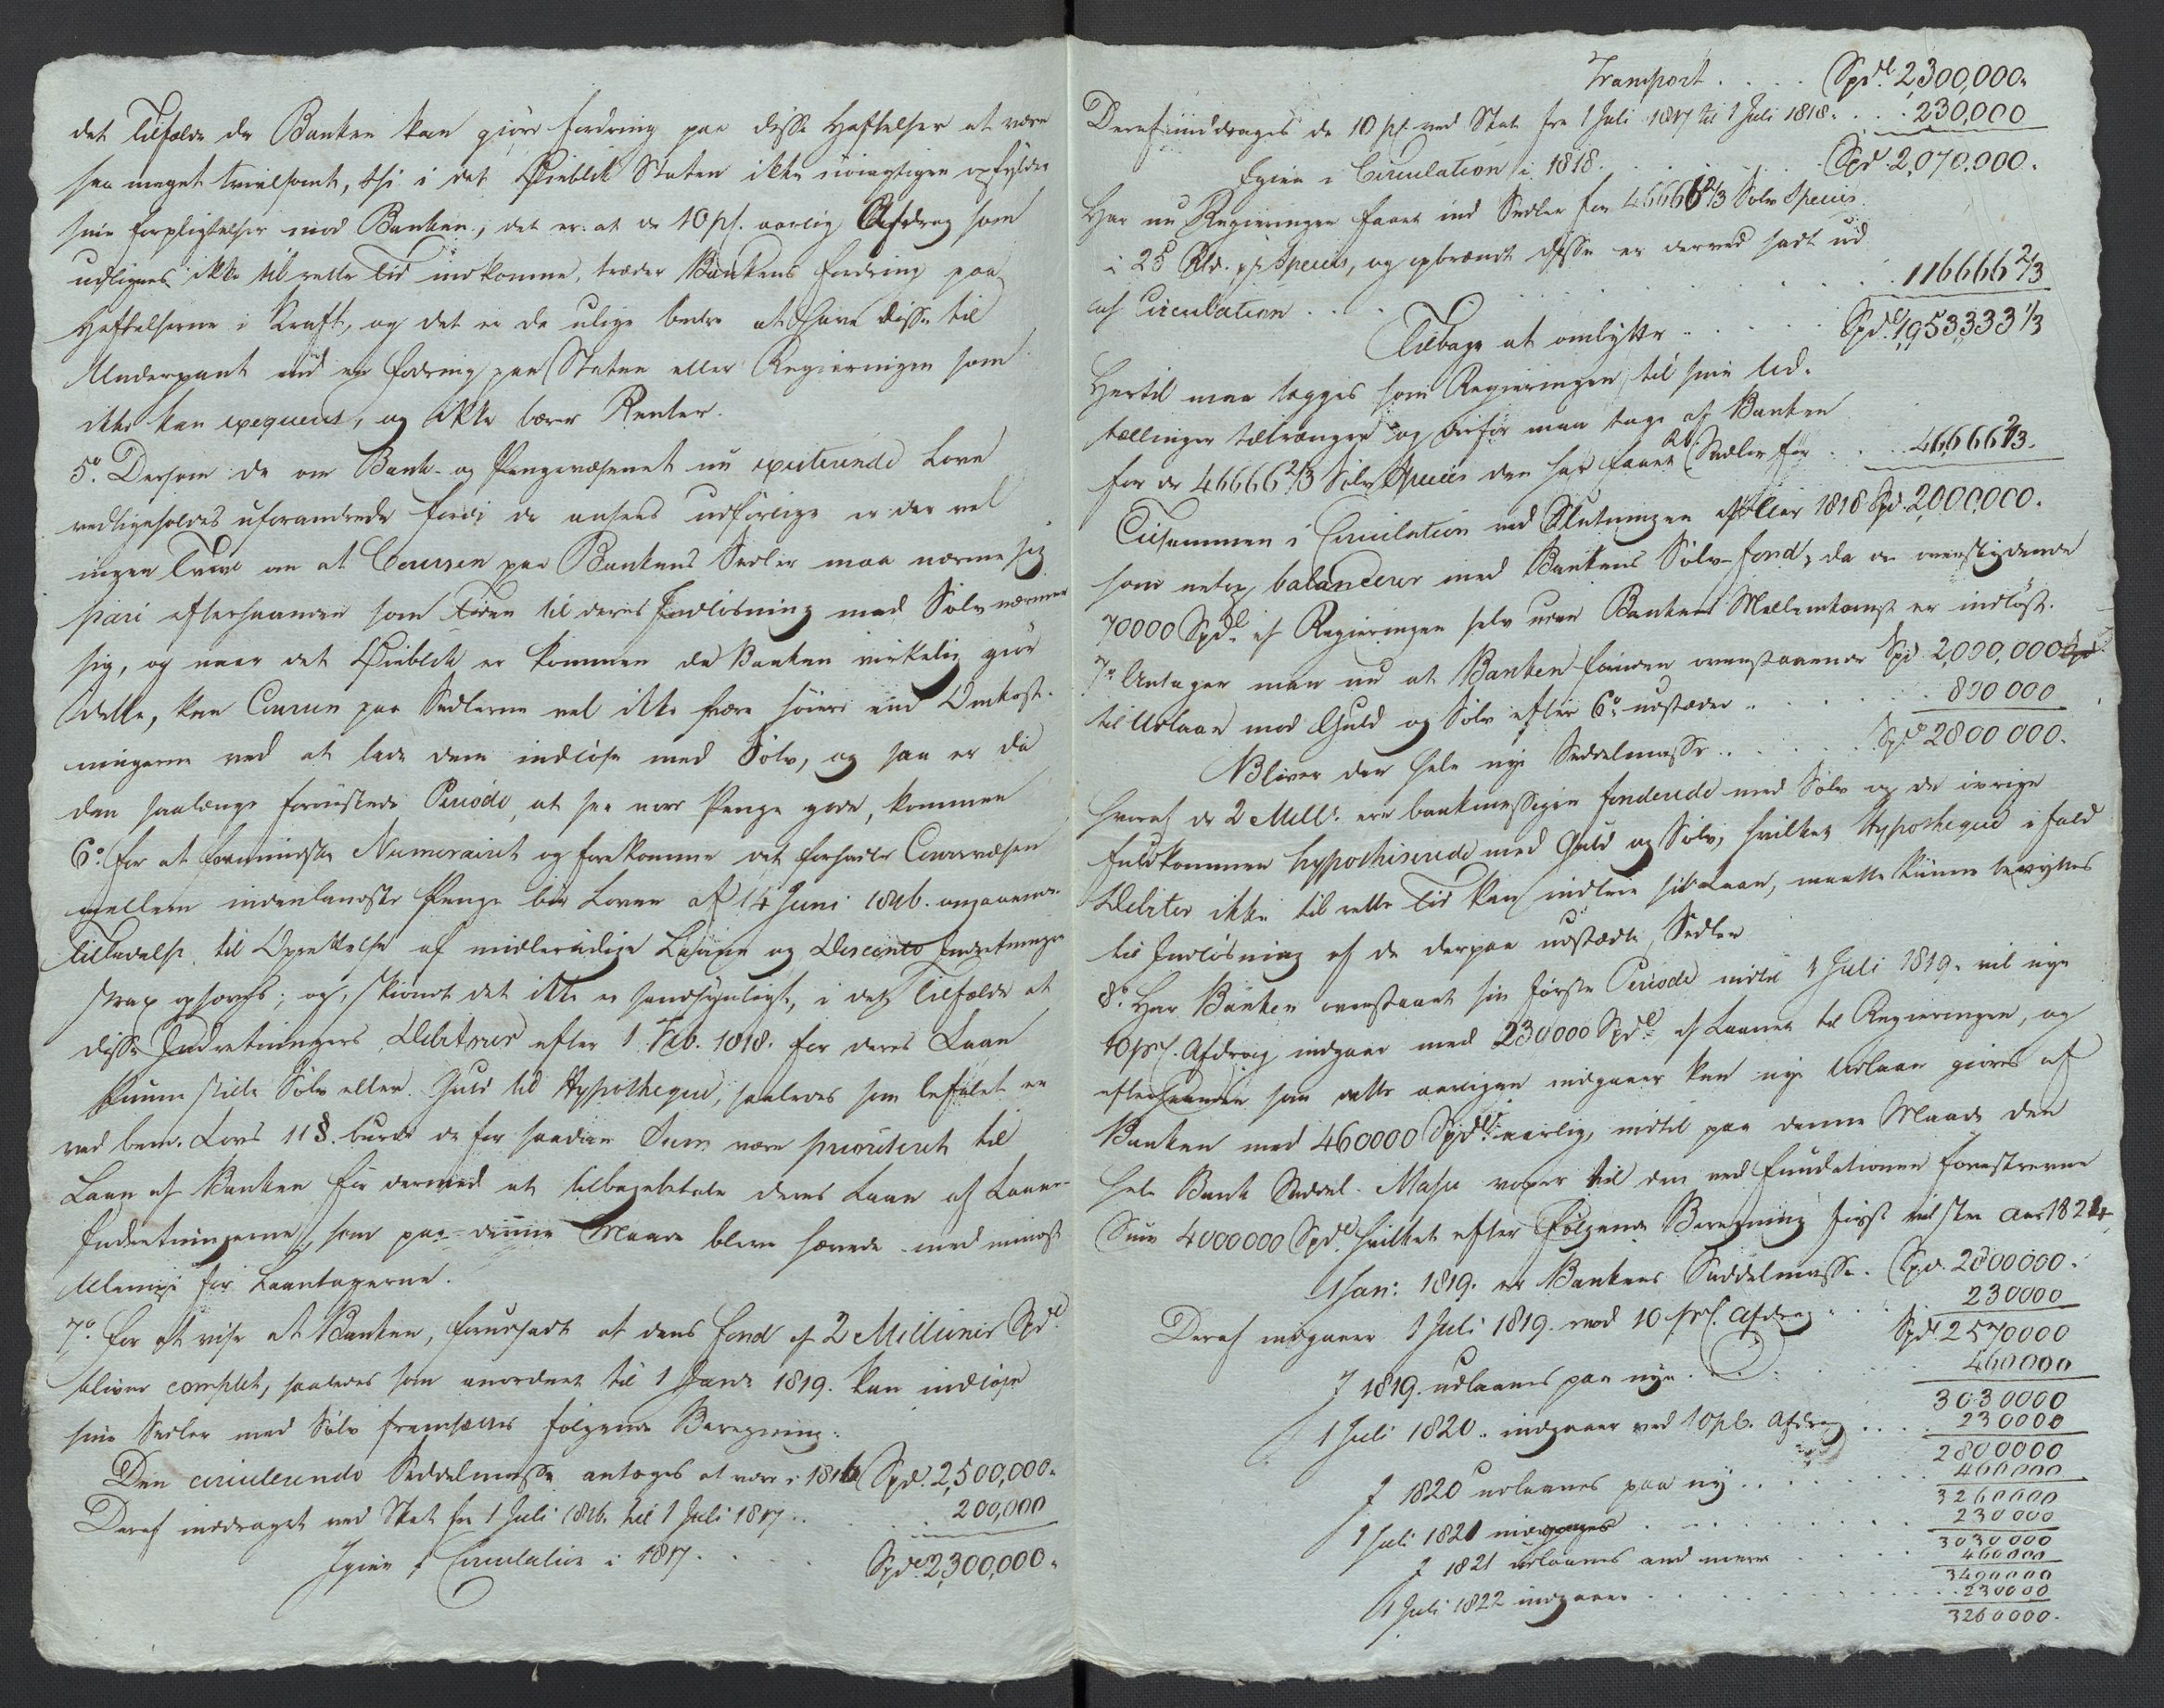 det Tilfælde da Banken kan giöre fordring paa disse Heftelser at være
saa meget tvivlsomt, thi i det Öieblik Staten ikke nöiagtigen opfylder
sine forpligtelser mod Banken, det er: at de 10 pCt. aarlig Afdrag som
udlignes ikke til rette Tid indkomme, træder Bankens fordring paa
Heftelserne i Kraft, og det er da ulige bedre at have disse til
Underpant end en fordring paa Staten eller Regieringen som
ikke kan exequeres, og ikke bærer Renter.
5o. Dersom de om Bank- og Pengevæsenet nu existerende Love
vedligeholdes uforandrede fordi de ansees udförlige er der vel
ingen Tvivl om at Coursen paa Bankens Sedler maa nærme sig
pari efterhaanden som Tiden til deres Indlösning med Sölv nærmer
sig, og naar det Öieblik er kommen da Banken virkelig giör
dette, kan Coursen paa Sedlerne vel ikke være höiere end Omkost-
ningerne ved at lade dem indlöse med Sölv, og saa er da
den saalænge forönskede Periode, at see vore Penge gode, kommen
6o. For at formindske Numerairet og forekomme det forhadte Coursvæsen
mellem indenlandske Penge bör Loven af 14 Juni 1816. angaaende
Tilladelse til Oprettelse af midlertidige Laane og Disconto Indretninger
strax ophæves; og, skiöndt det ikke er sandsynligt, i det Tilfælde at
disse Indretningers Debitorer efter 1 Feb. 1818. for deres Laan
kunne stille Sölv eller Guld til Hypotheque, saaledes som befalet er
ved bem. Lovs 11 §. burde de for saadan Sum være prioriteret til
Laan af Banken for dermed at tilbagebetale deres Laan af Laane-
Indretningerne, som paa denne Maade bleve hævede med mindst
Ulempe for Laantagerne.
7o. For at vise at Banken, forudsadt at dens fond af 2 Millioner Spd.
bliver complet, saaledes som anordnet til 1 Janr. 1819. kan indlöse
sine Sedler med Sölv fremsættes fölgende Beregning:
Den circulerende Seddelmasse antages at være i 1816 Spd. 2,500,000.
Deraf inddraget ved Skat fra 1 Juli 1816. til 1 Juli 1817. . . 200,000
Igien i Circulation i 1817. . . . Spd. 2,300,000.
Transport . . . . Spd. 2,300,000.
Deraf inddrages de 10 pCt. ved Skat fra 1 Juli 1817 til 1 Juli 1818. . . . 230,000
Igien i Circulation i 1818. . . . . . Spd. 2,070,000.
Har nu Regieringen faaet ind Sedler for 46666 2/3 Sölv Species
i 25 Rd. pr Species, og opbrændt disse er derved sadt ud
af Circulation . . . . . . . . . . 116666 2/3
Tilbage at ombytte . . . . . Spd. 1,953,333 1/3
Hertil maa lægges som Regieringen til sine Ud-
tællinger tiltrænger og derfor maa tage af Banken
for de 46666 2/3 Sölv Species den har faaet Sedler for . . . 46,666 2/3.
Tilsammen i Circulation ved Slutningen af Aar 1818 Spd. 2,000,000.
som netop balancerer med Bankens Sölv-fond, da de overskydende
70000 Spd. af Regieringen selv uden Bankens Mellemkomst er indlöst.
7o. Antager man nu at Banken foruden ovenstaaende Spd. 2,000,000
til Udlaan mod Guld og Sölv efter 6o. udsteder . . . . 800 000
Bliver den hele nye Seddelmasse . . . . . Spd. 2800 000.
hvoraf de 2 Mill. ere bankmessigen funderede med Sölv og de övrige
fuldkommen hypothiserede med Guld og Sölv, hvilken Hypotheque i fald
Debitor ikke til rette Tid kan indfrie sit Laan, maatte kunne benyttes
til Indlösning af de derpaa udstædte Sedler
8o. Har Banken overstaaet sin förste Periode indtil 1 Juli 1819. vil nye
10 pCt. Afdrag indgaae med 230000 Spd. af Laanet til Regieringen, og
efterhaanden som dette aarligen indgaaer kan nye Udlaan giöres af
Banken med 460000 Spd. aarlig, indtil paa denne Maade den
hele Bank Seddel-Masse voxer til den ved fundationen foreskrevne
Sum 4000000 Spd. hvilket efter Fölgende Beregning först vil skee Aar 1824
1 Jan: 1819. er Bankens Seddelmasse. Spd. 2800000.
Deraf indgaaer 1 Juli 1819. ved 10 pCt. Afdrag . . . . 230000
Spd. 2570000
I 1819. udlaanes paa nye. . . . . . 460000
3030000
1 Juli 1820. indgaaer ved 10 pCt. Afdrag . . . . 230000
2800000
I 1820 udlaanes paa ny . . . . . . . 460000
3260000
1 Juli 1821 indgaaer . . . . . . . . 230000
3030000
I 1821 udlaanes end mere . . . . . 460000
3490000
1 Juli 1822 indgaaer . . . . . . . . 230000
3260000.